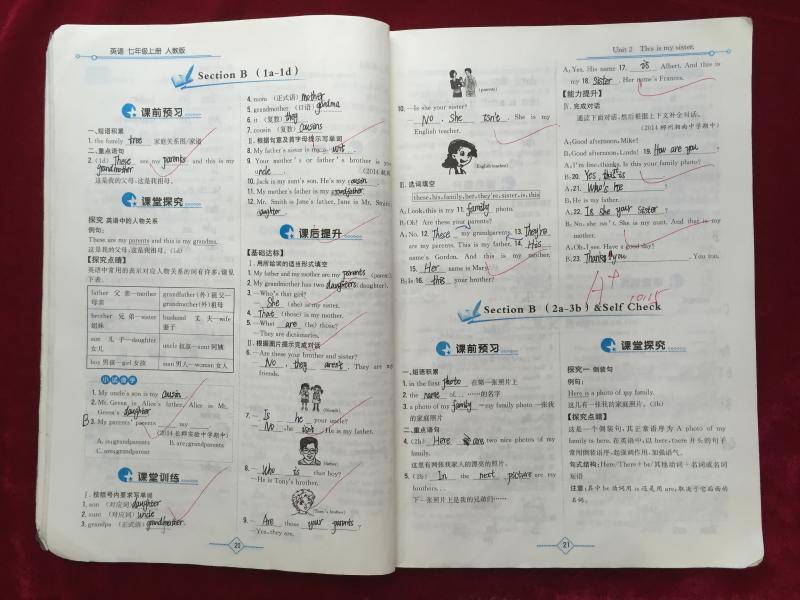 英语 七年级上册 人教版
Section B (1a-1d)
课前预习
一、短语积累
1. the family tree 家庭关系图/家谱
二、重点语句
2. (1d) These are my parents and this is my
grandmother
这是我的父母,这是我祖母。
课堂探究
探究 英语中的人物关系
例句:
These are my parents and this is my grandma.
这是我的父母,这是我祖母。(1d)
【探究点睛】
英语中常用的表示对应人物关系的词有许多,填见
下表:
father 父亲—mother 母亲
grandfather(外)祖父—grandmother(外)祖母
brother 兄弟—sister 姐妹
husband 丈夫—wife 妻子
son 儿子—daughter 女儿
uncle 叔叔—aunt 阿姨
boy 男孩—girl 女孩
man 男人—woman 女人
小试身手
1. My uncle's son is my cousin
2. Mr. Green is Alice's father. Alice is Mr.
Green's daughter
B 3. My parents' parents my
(2014 长师实验中学期中)
A. is; grandparents B. are; grandparents
C. are; grandparent
课堂训练
Ⅰ. 按括号内要求写单词
1. son (对应词) daughter
2. aunt (对应词) uncle
3. grandpa (正式语) grandfather
4. mom (正式语) mother
5. grandmother (口语) grandma
6. it (复数) they
7. cousin (复数) cousins
Ⅱ. 根据句意及首字母提示写单词
8. My father's sister is my a unt
9. Your mother's or father's brother is your
uncle
10. Jack is my aunt's son. He's my cousin
11. My mother's father is my grandfather
12. Mr. Smith is Jane's father. Jane is Mr. Smith's
daughter
课后提升
【基础达标】
Ⅰ. 用所给词的适当形式填空
1. My father and my mother are my parents (parent)
2. My grandmother has two daughters (daughter).
3. —Who's that girl?
—She (she) is my sister.
4. That (those) is my mother.
5. —What are (be) those?
—They are dictionaries.
Ⅱ. 根据图片提示完成对话
6. —Are these your brother and sister?
—No, they aren't. They are my
friends.
(friends)
7. —Is he your uncle?
—No he isn't. He is my father.
8. —Who is that boy?
—He is Tony's brother.
(Tony's brother)
9. —Are those your parents?
—Yes, they are.
20
Unit 2 This is my sister.
(parents)
10. —Is she your sister?
—No, She isn't. She is my
English teacher.
(English teacher)
Ⅲ. 选词填空
these, his, family, her, they're, sister, is, this
A: Look, this is my 11. family photo.
B: Oh! Are these your parents?
A: No. 12. These my grandparents. 13. They're
are my parents. This is my father. 14. His
name's Gordon. And this is my mother.
15. Her name is Mary.
B: Is 16. this your brother?
A: Yes. His name 17. is Albert. And this is
my 18. sister. Her name's Frances.
【能力提升】
Ⅳ. 完成对话
通读下面对话,然后根据上下文补全对话。
A: Good afternoon, Mike!
B: Good afternoon, Linda! 19. How are you?
A: I'm fine, thanks. Is this your family photo?
B: 20. Yes, that's is
A: 21. Who's he?
B: He is my father.
A: 22. Is she your sister?
B: No, she isn't. She is my aunt. And that is my
mother.
A: Oh, I see. Have a good day!
B: 23. Thank you. You too.
A+
10.15
Section B (2a-3b) & Self Check
课前预习
一、短语积累
1. in the first photo 在第一张照片上
2. the name of… ……的名字
3. a photo of my family =my family photo 一张我
的家庭照片
二、重点语句
4. (2b) Here are two nice photos of my
family.
这里有两张我家人的漂亮的照片。
5. (2b) In the next picture are my
brothers…
下一张照片上是我的兄弟们……
课堂探究
探究一 倒装句
例句:
Here is a photo of my family.
这儿有一张我的家庭照片。(3b)
【探究点睛】
这是一个倒装句,其正常语序为 A photo of my
family is here. 在英语中,以 here, there 开头的句子
常用倒装语序,起强调作用,加强语气。
句式结构:Here/There+be/其他动词+名词或名词
短语
注意:其中 be 动词用 is 还是用 are,取决于它后面的
名词。
21